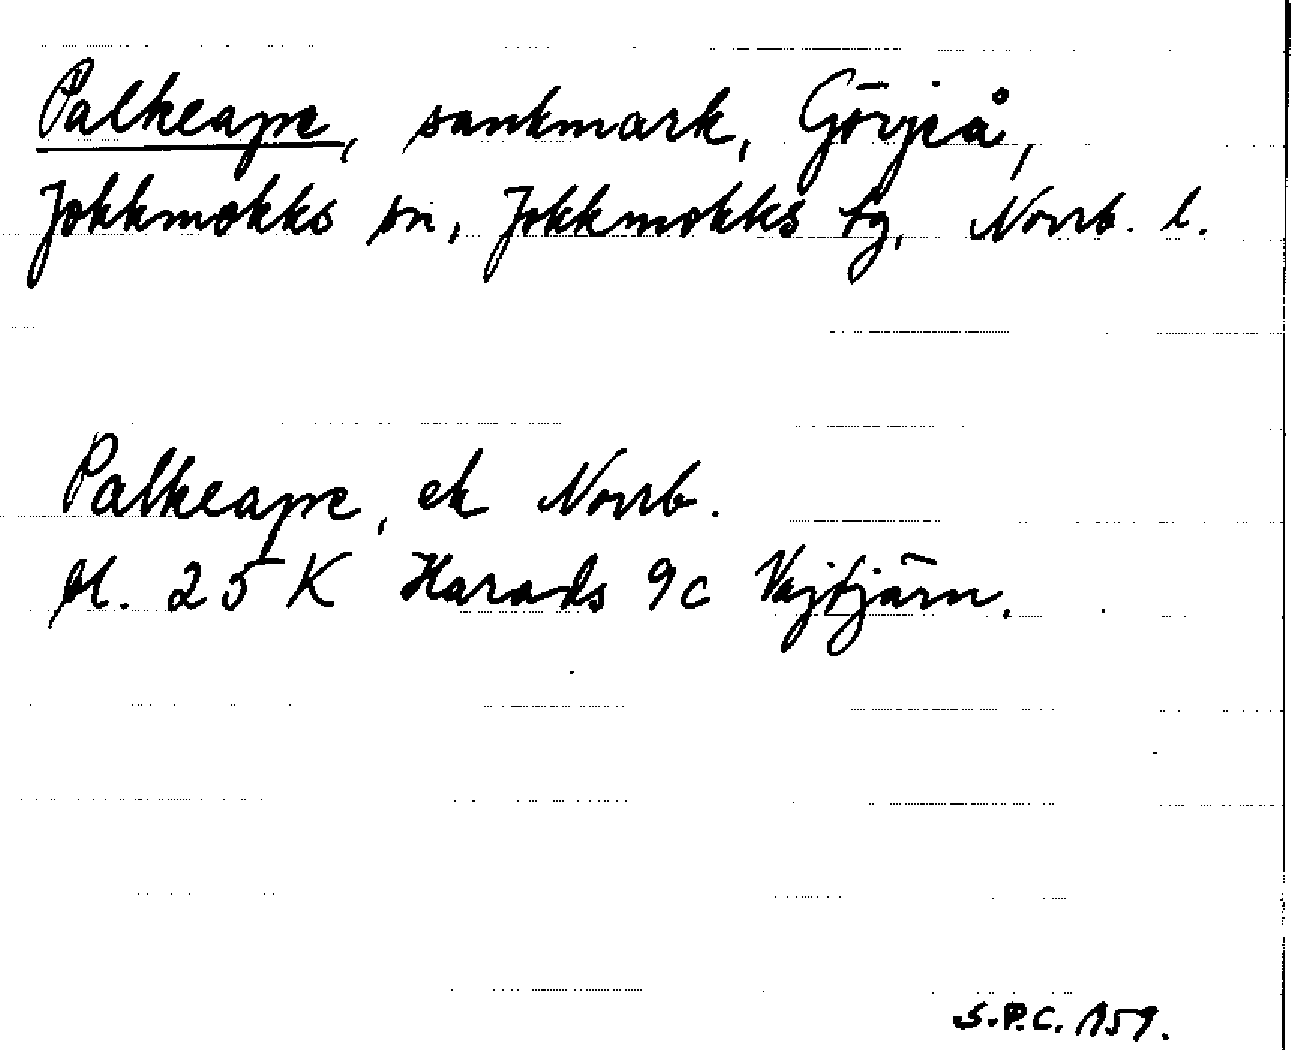 Palkeape, sankmark, Görjeå,
Jokkmokks sn, Jokkmokks tg, Norrb. l.
Palkeape, ek Norrb.
bl. 25 K Harads 9c Vajtjärn.
S.P.C. 1959.